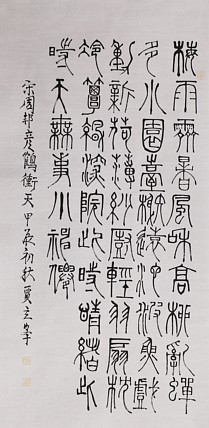 梅雨霽暑風和高柳亂蟬
多小園臺榭遠池波魚戲
動新荷薄紗廚輕羽扇枕
冷簟涼深院此時情緒此
時天無事小神僊
宋周邦彦鶴衝天甲辰初秋賈